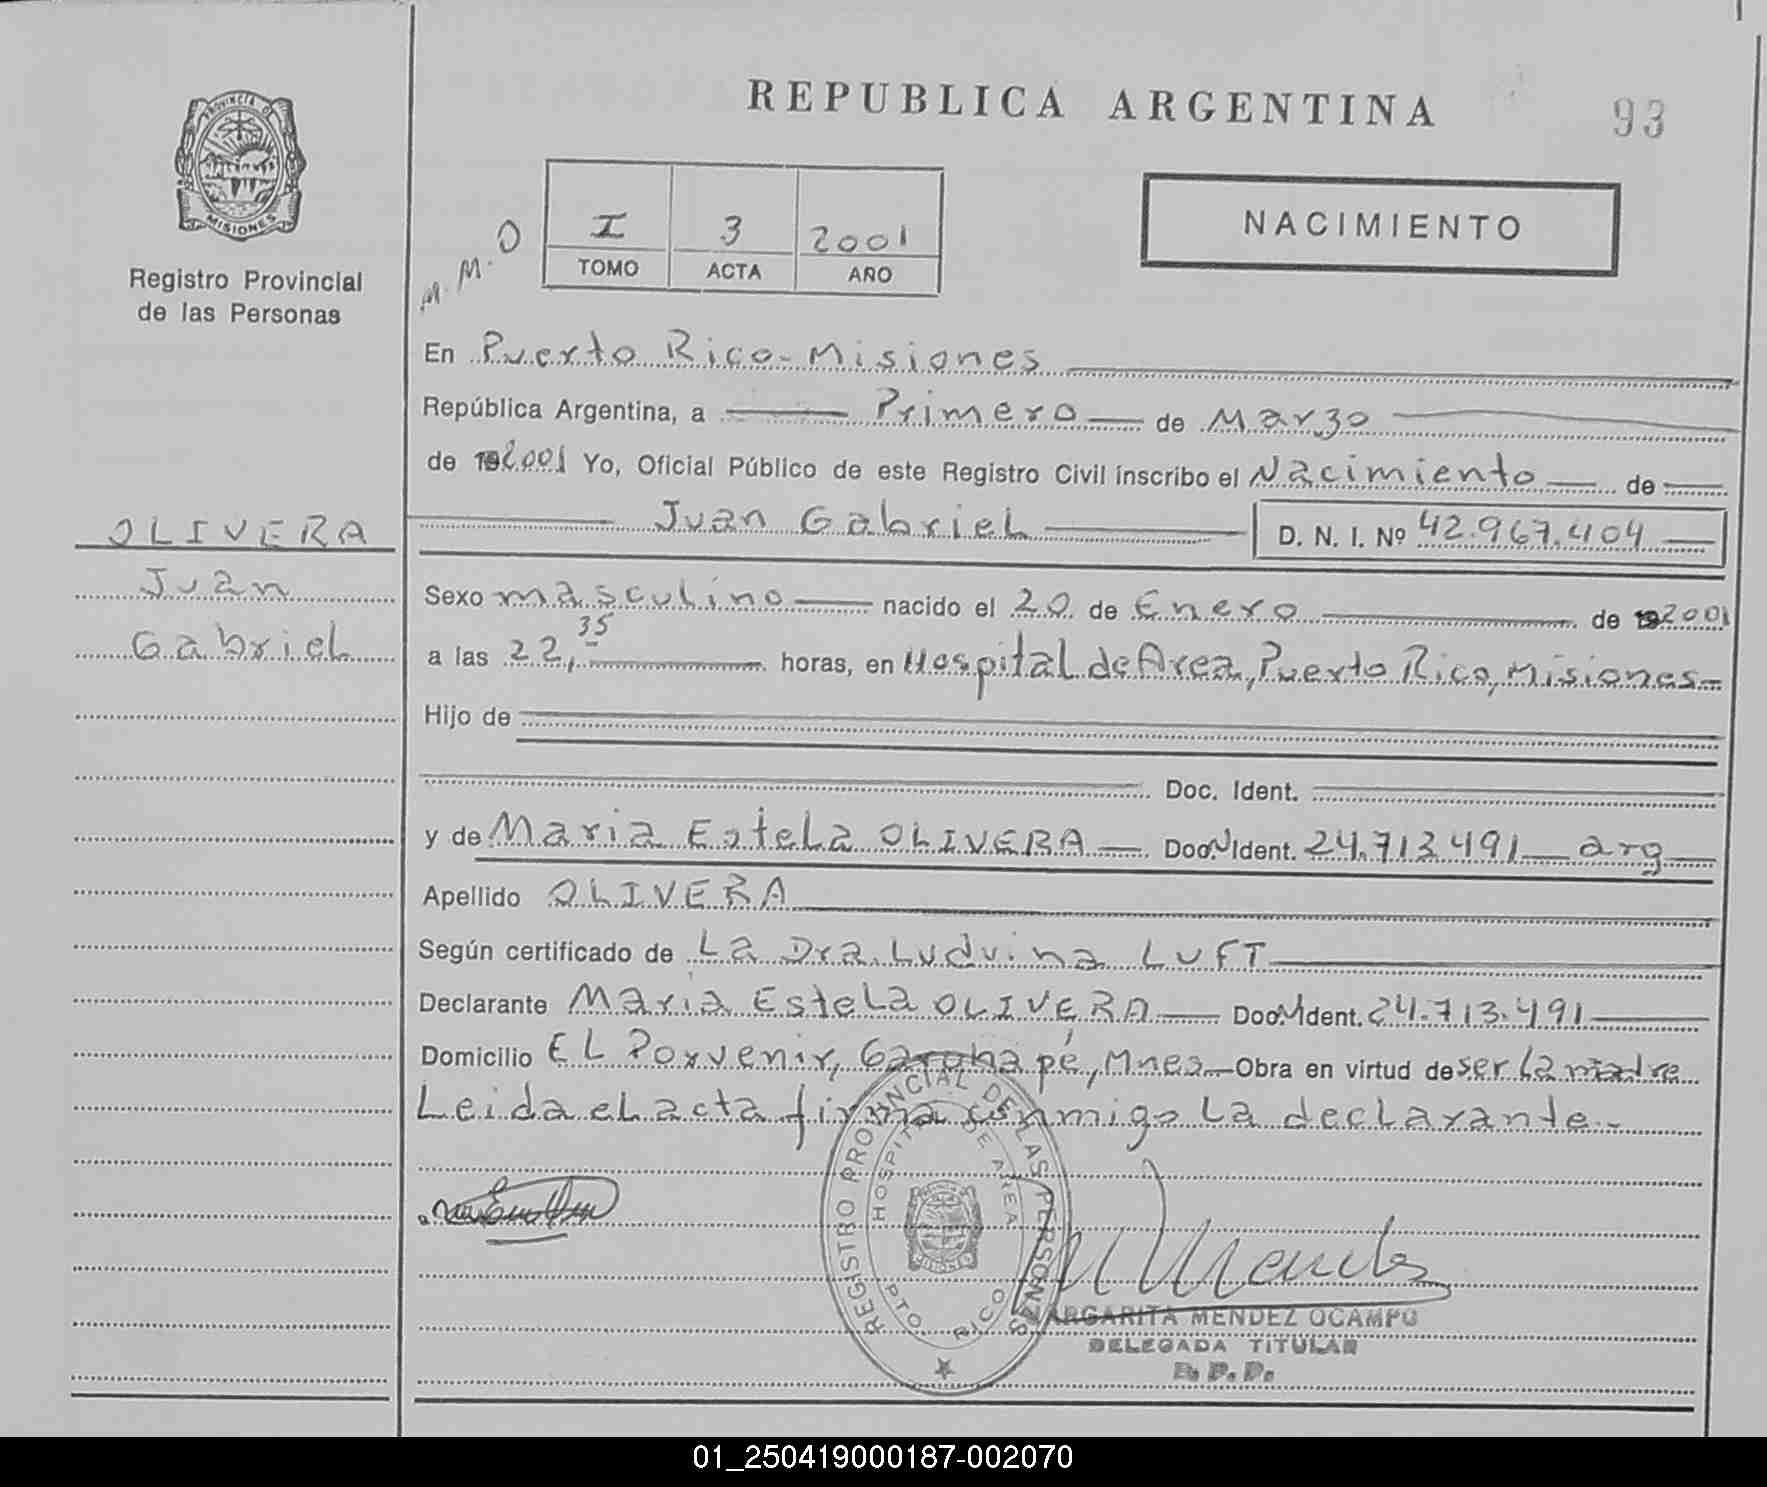 REPUBLICA ARGENTINA
93
PROVINCIA D
MISIONES
Registro Provincial
de las Personas
M. M. O
I 3 2001
TOMO ACTA AÑO
NACIMIENTO
En Puerto Rico - Misiones
República Argentina, a Primero de Marzo
de 2001 Yo, Oficial Público de este Registro Civil inscribo el Nacimiento de
Juan Gabriel D. N. I. Nº 42.967.404
OLIVERA
Juan
Gabriel
Sexo masculino nacido el 20 de Enero de 2001
a las 22,35 horas, en Hospital de Area, Puerto Rico, Misiones-
Hijo de
Doc. Ident.
y de Maria Estela OLIVERA Doc. Ident. 24.713.491 arg
Apellido OLIVERA
Según certificado de La Dra. Ludvina LUFT
Declarante Maria Estela OLIVERA Doc. Ident. 24.713.491
Domicilio EL Porvenir, Garuhapé, Mnes Obra en virtud de ser La madre
Leida el acta firma conmigo La declarante.-
REGISTRO PROVINCIAL DE LAS PERSONAS
HOSPITAL DE AREA
PTO. RICO
MISIONES
MARGARITA MENDEZ OCAMPO
DELEGADA TITULAR
R. P. P.
01_250419000187-002070